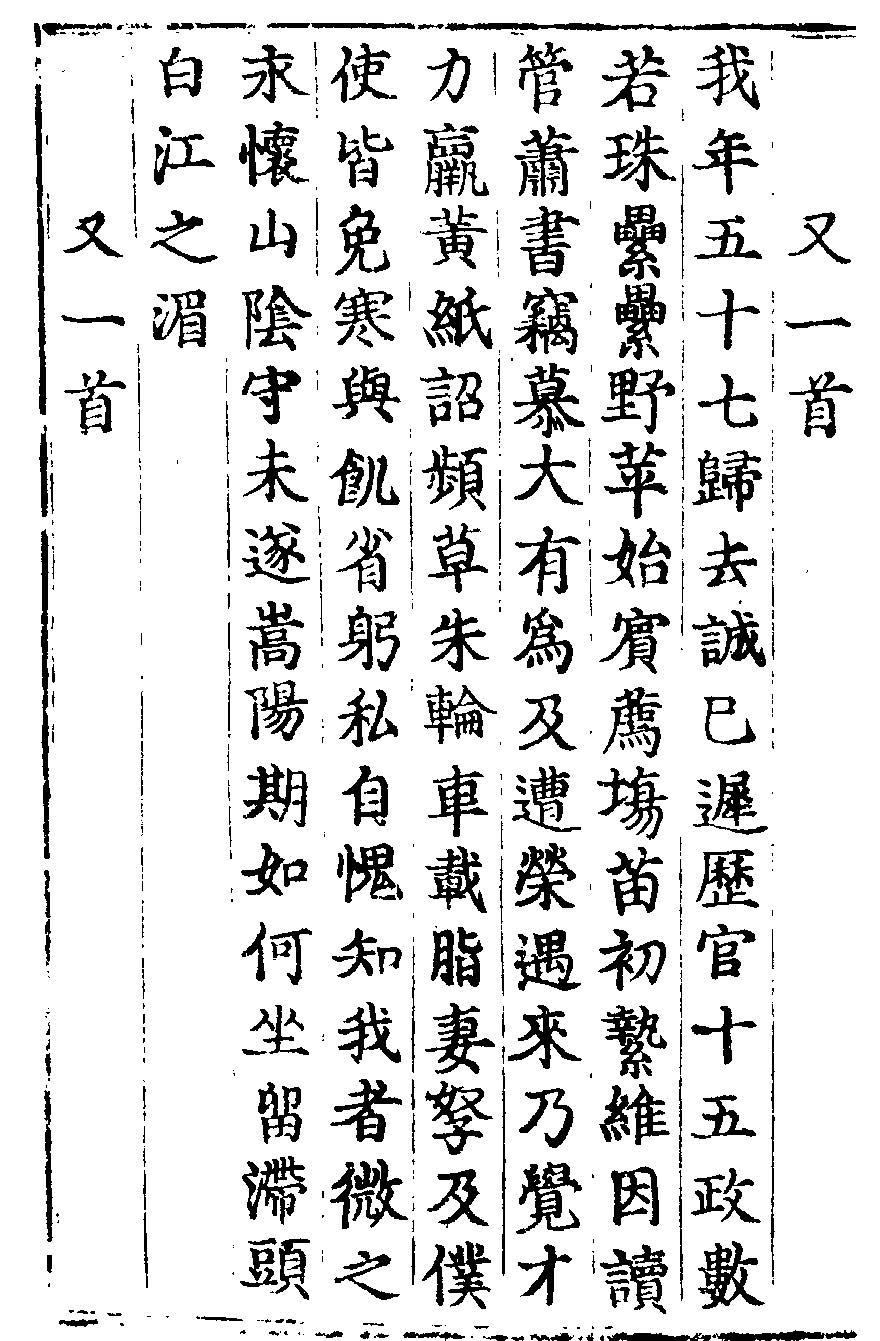 又一首
我年五十七歸去誠已遲歷官十五政數
若珠纍纍野苹始賓薦塲苗初縶維因讀
管蕭書竊慕大有爲及遭榮遇來乃覺才
力羸黃紙詔頻草朱輪車載脂妻孥及僕
使皆免寒與飢省躬私自愧知我者微之
永懷山陰守未遂嵩陽期如何坐留滯頭
白江之湄
又一首